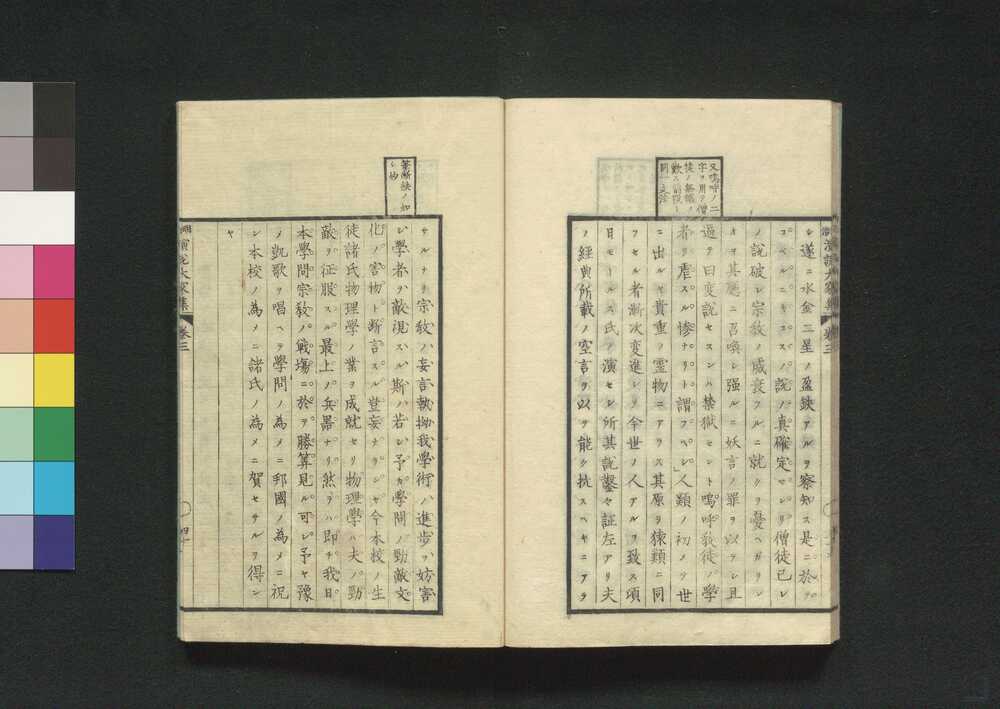 又嗚呼ノ二
字ヲ用ヲ僧
徒ノ無識ヲ
歎ス前段ト
同一文法
シ遂ニ水金二星ノ盈缺アルヲ察知ス是ニ於テ
コペルニキュスノ説ノ真確定マレリ僧徒已レ
ノ説破レ宗教ノ威衰フルニ就クヲ憂ヘガリレ
オヲ其廳ニ召喚シ强ルニ妖言ノ罪ヲ以テシ且
逼ヲ曰変説セスンハ禁獄セント嗚呼敎徒ノ學
者ヲ虐スル惨ナリト謂フベシ」人類ノ初メヲ世
ニ出ルヤ貴重ヲ靈物ニアラス其原ヲ猿類ニ同
フセル者漸次変進シヲ今世ノ人アルヲ致ス項
日モールス氏ヲ演セシ所其說鑿々証左アリ夫
ノ經典所載ノ空言ヲ以ヲ能ク抗スヘキニアラ
演説大家集 卷三
筆漸快ノ如
シ妙
サルナリ宗敎ノ妄言執拗我學術ノ進步ヲ妨害
シ學者ヲ敵視スル斯ノ若シ予カ學問ノ勁敵文
化ノ害物ト斷言スル豈妄ナランヤ今本校ノ生
徒諸氏物理學ノ業ヲ成就セリ物理學ハ夫ノ勁
敵ヲ征服スル最上ノ兵器ナリ然ラハ即チ我日
本學問宗敎ノ戰塲ニ於ヲ勝算見ル可シ予ヤ豫
ノ凱歌ヲ唱ヘヲ學問ノ為メニ邦國ノ為メニ祝
シ本校ノ為メニ諸氏ノ為メニ賀セサルヲ得ン
ヤ
演説大家集 卷三
四十